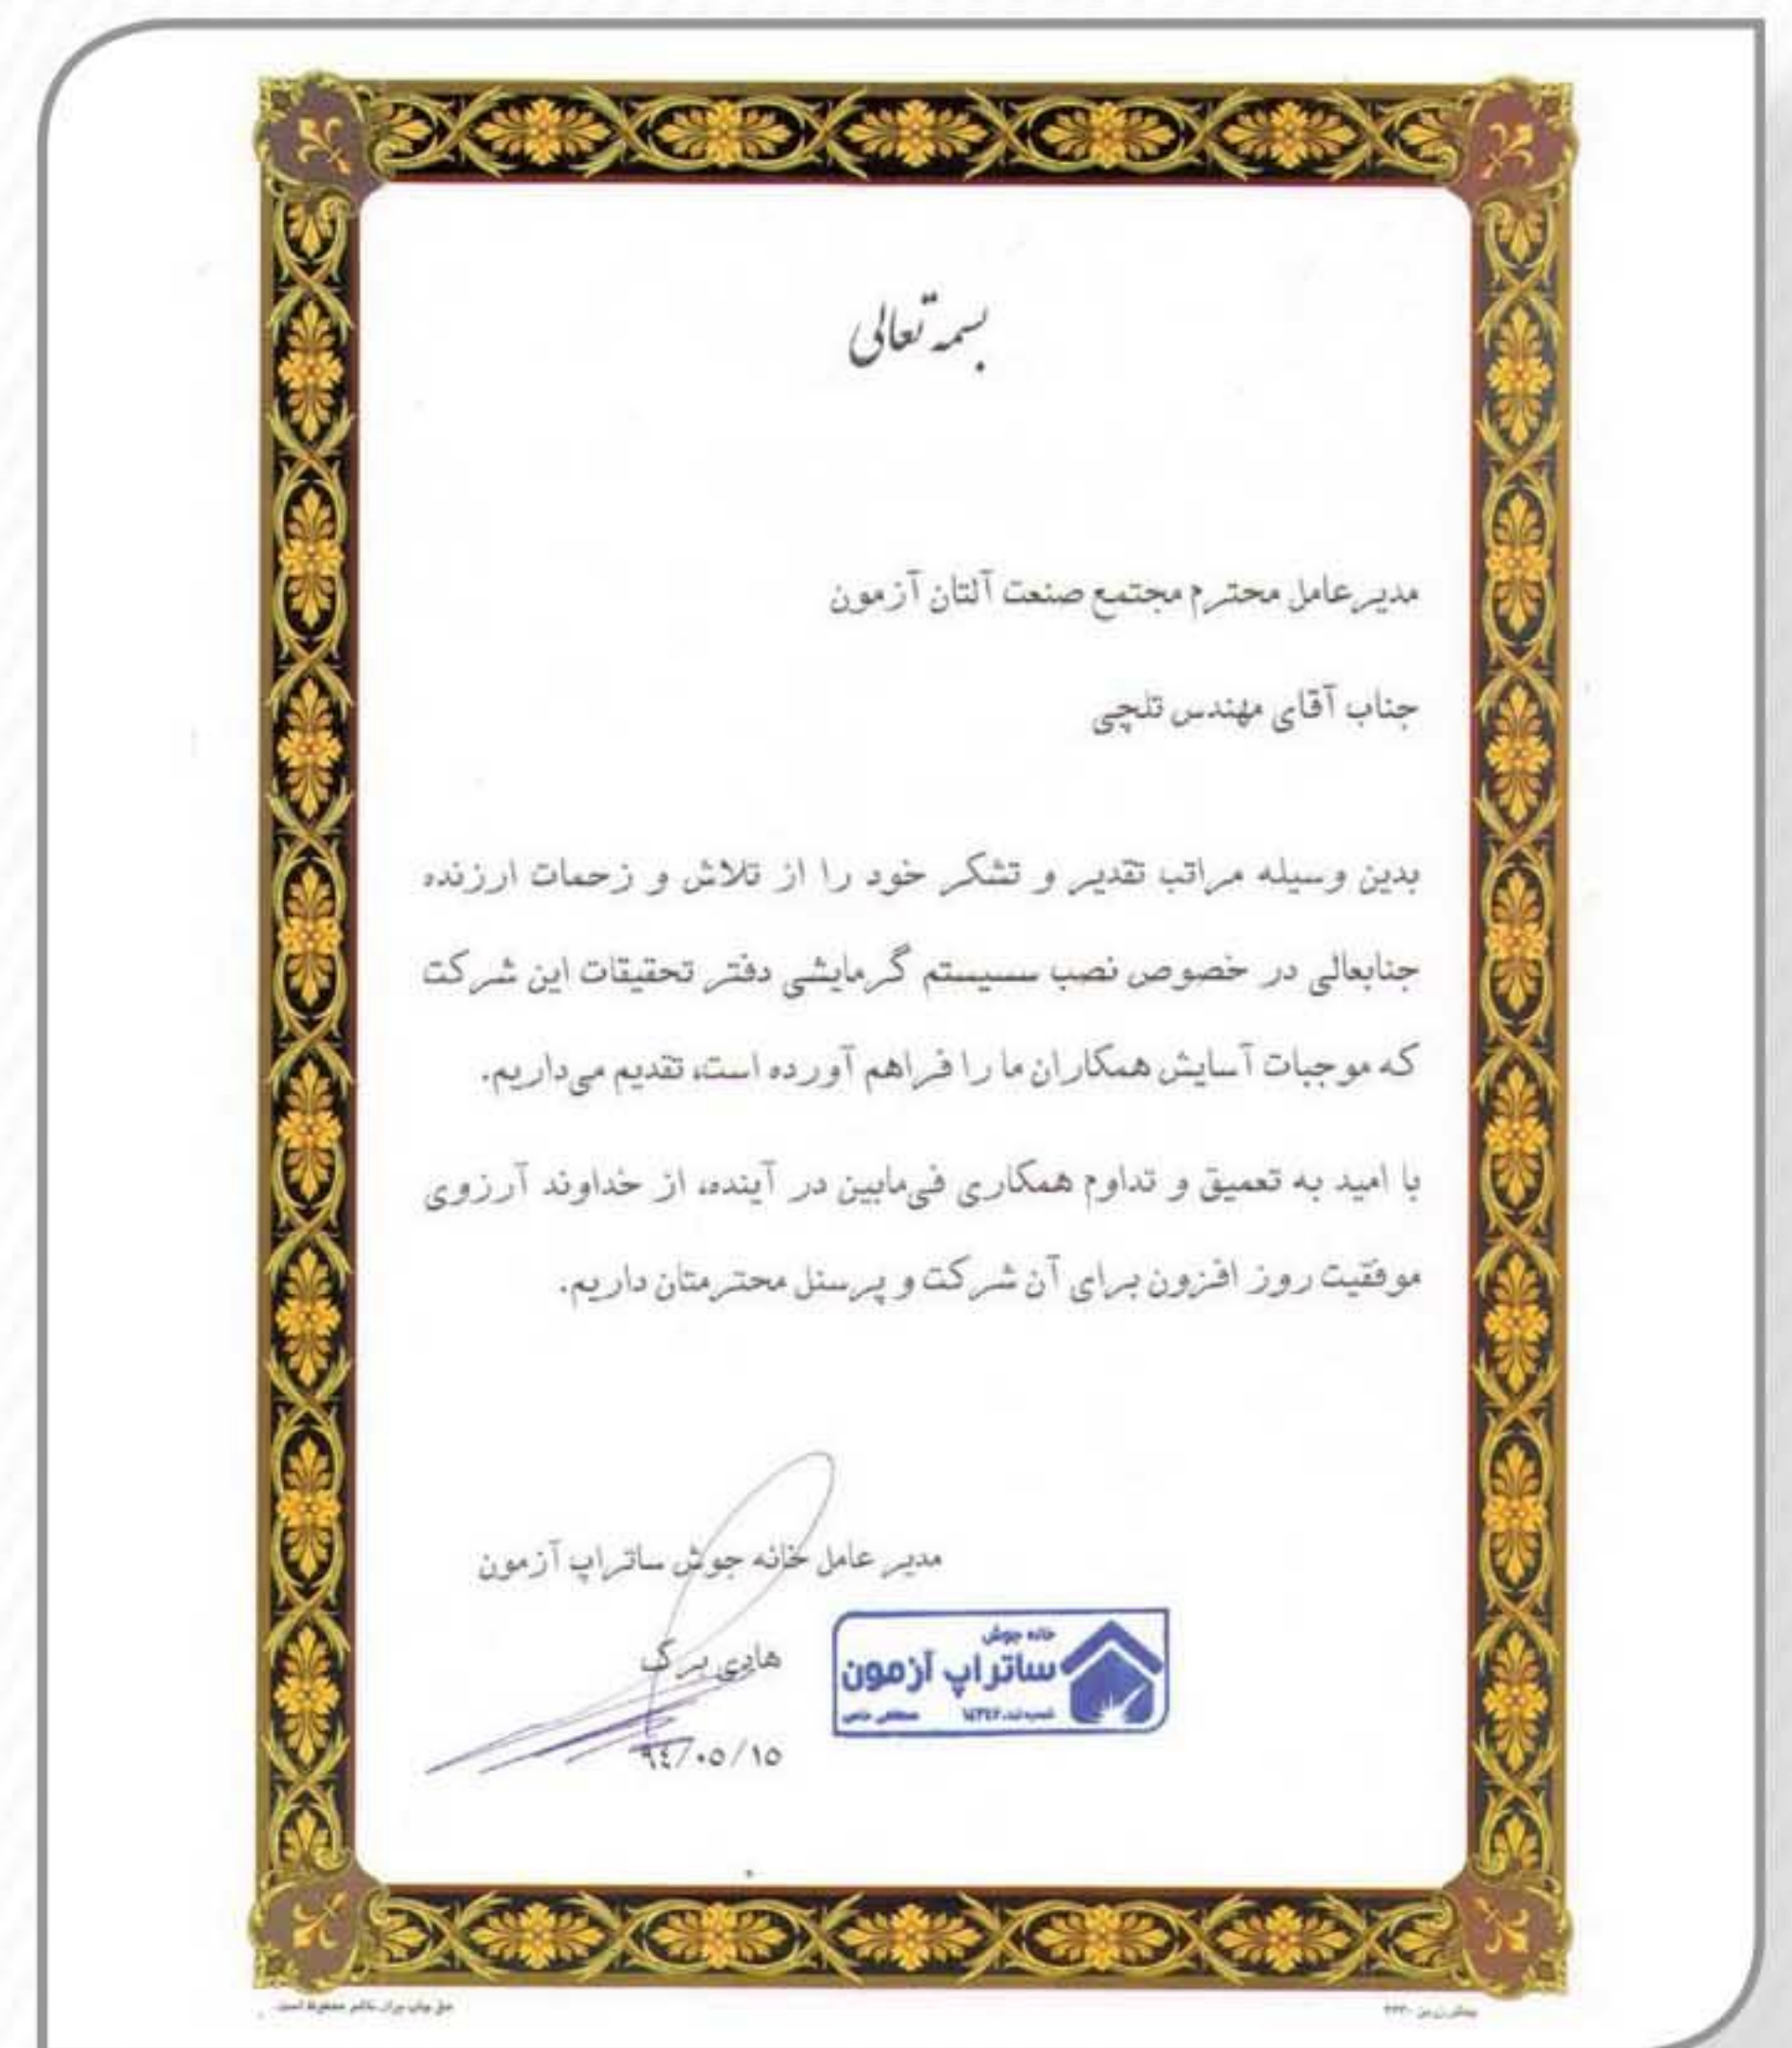 بسمه تعالی
مدیرعامل محترم مجتمع صنعت آلتان آزمون
جناب آقای مهندس تلچی
بدین وسیله مراتب تقدیر و تشکر خود را از تلاش و زحمات ارزنده
جنابعالی در خصوص نصب سیستم گرمایشی دفتر تحقیقات این شرکت
که موجبات آسایش همکاران ما را فراهم آورده است، تقدیم می‌داریم.
با امید به تعمیق و تداوم همکاری فی‌مابین در آینده، از خداوند آرزوی
موفقیت روز افزون برای آن شرکت و پرسنل محترمتان داریم.
مدیر عامل خانه جوش ساتراپ آزمون
هادی برگ
۹٤/۰۵/۱۵
خانه جوش
ساتراپ آزمون
حق چاپ برای ناشر محفوظ است